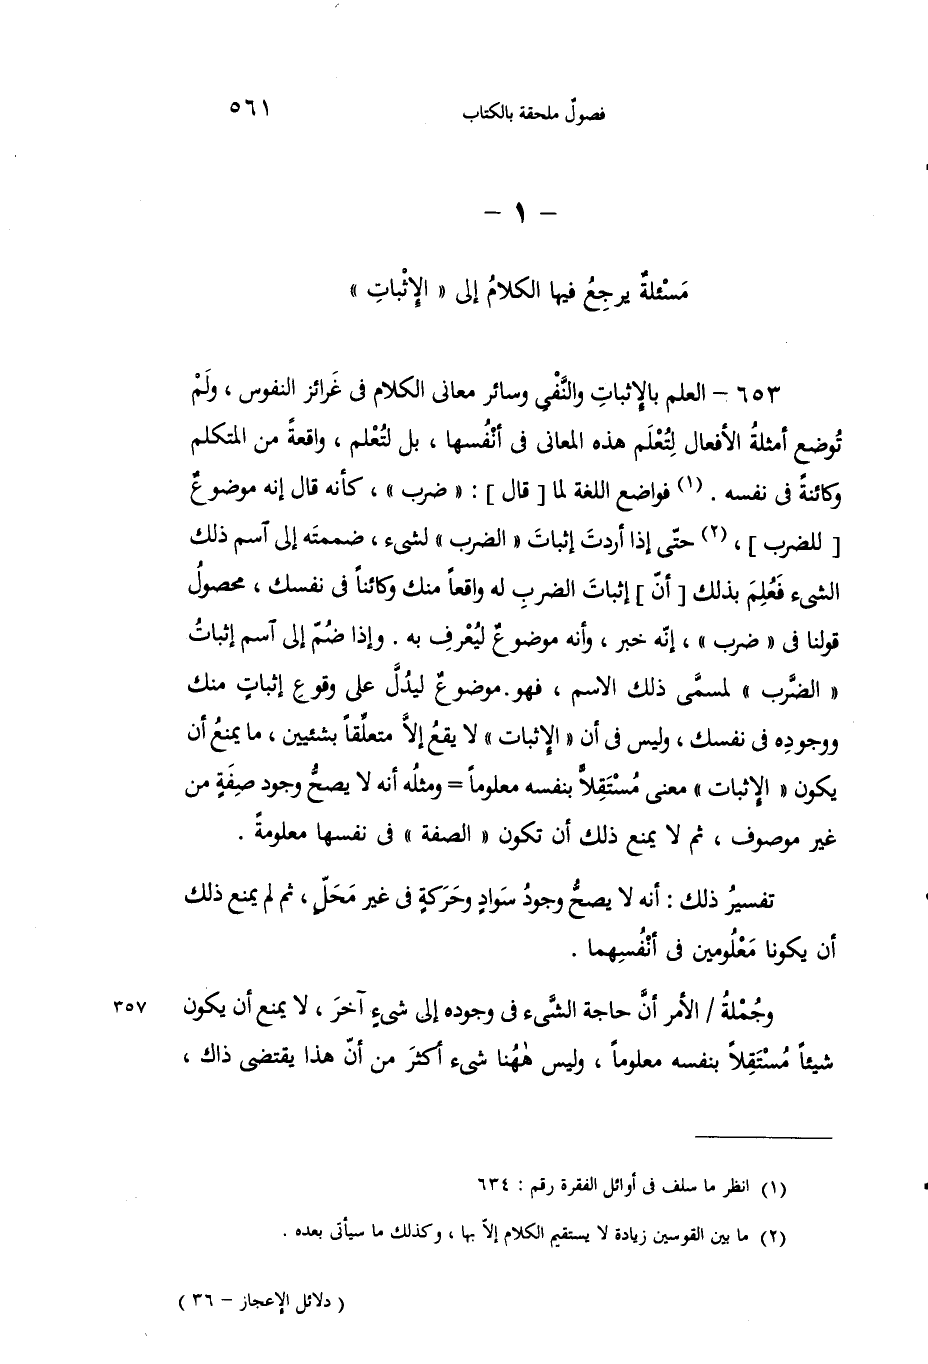 فصولٌ ملحقة بالكتاب ٥٦١
– ١ –
مَسْئلةٌ يرجِعُ فيها الكلامُ إلى « الإِثْباتِ »
٦٥٣ – العلم بالإِثباتِ والنَّفْيِ وسائر معانى الكلام فى غَرائز النفوس ، ولَمْ
تُوضع أمثلةُ الأفعال لِتُعْلَم هذه المعانى فى أنْفُسها ، بل لتُعْلم ، واقعةً من المتكلم
وكائنةً فى نفسه . (١) فواضع اللغة لما [ قال ] : « ضرب » ، كأنه قال إنه موضوعٌ
[ للضرب ] ، (٢) حتّى إذا أردتَ إثباتَ « الضرب » لشىء ، ضممتَه إلى آسم ذلك
الشىء فَعُلِمَ بذلك [ أنّ ] إثباتَ الضربِ له واقعاً منك وكائناً فى نفسك ، محصولُ
قولنا فى « ضرب » ، إنّه خبر ، وأنه موضوعٌ ليُعْرف به . وإذا ضُمّ إلى آسم إثباتُ
« الضَّرب » لمسمَّى ذلك الاسم ، فهو موضوعٌ ليدُلَّ على وقوعِ إثباتٍ منك
ووجودِه فى نفسك ، وليس فى أن « الإِثبات » لا يقعُ إلاَّ متعلِّقاً بشئيين ، ما يمنعُ أن
يكون « الإِثبات » معنى مُسْتَقِلاًّ بنفسه معلوماً = ومثلُه أنه لا يصحُّ وجود صِفَةٍ من
غير موصوف ، ثم لا يمنع ذلك أن تكون « الصفة » فى نفسها معلومةً .
تفسيرُ ذلك : أنه لا يصحُّ وجودُ سَوادٍ وحَرَكةٍ فى غير مَحَلّ ، ثم لم يمنع ذلك
أن يكونا مَعْلُومين فى أنْفُسِهما .
وجُمْلةُ / الأمر أنَّ حاجة الشَّىء فى وجوده إلى شىءٍ آخرَ ، لا يمنع أن يكون ٣٥٧
شيئاً مُسْتَقِلاً بنفسه معلوماً ، وليس هٰهُنا شىء أكثرَ من أنّ هذا يقتضى ذاك ،
(١) انظر ما سلف فى أوائل الفقرة رقم : ٦٣٤
(٢) ما بين القوسين زيادة لا يستقيم الكلام إلاّ بها ، وكذلك ما سيأتى بعده .
( دلائل الإعجاز – ٣٦ )